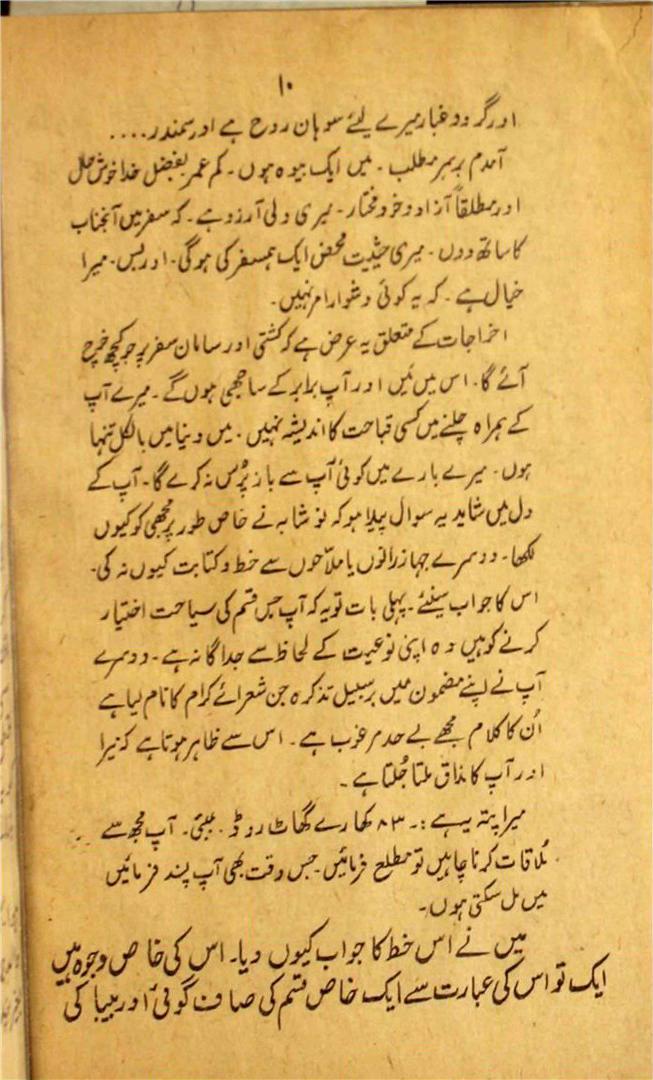 ۱۰
اور گرد و غبار میرے لئے سوہان روح ہے اور سمندر ....
آمدم برسر مطلب ۔ میں ایک بیوہ ہوں ۔ کم عمر بفضل خدا خوش حال
اور مطلقاً آزاد و خود مختار ۔ میری دلی آرزو ہے ۔ کہ سفر میں آنجناب
کا ساتھ دوں ۔ میری حیثیت محض ایک ہمسفر کی ہوگی ۔ اور بس ۔ میرا
خیال ہے ۔ کہ یہ کوئی دشوار امر نہیں ۔
اخراجات کے متعلق یہ عرض ہے کہ کشتی اور سامان سفر پر جو کچھ خرچ
آئے گا ۔ اس میں مَیں اور آپ برابر کے ساجھی ہوں گے ۔ میرے آپ
کے ہمراہ چلنے میں کسی قباحت کا اندیشہ نہیں ۔ میں دنیا میں بالکل تنہا
ہوں ۔ میرے بارے میں کوئی آپ سے باز پُرس نہ کرے گا ۔ آپ کے
دل میں شاید یہ سوال پیدا ہو کہ نوشابہ نے خاص طور پر مجھی کو کیوں
لکھا ۔ دوسرے جہاز رانوں یا ملاحوں سے خط و کتابت کیوں نہ کی ۔
اس کا جواب سنئے ۔ پہلی بات تو یہ کہ آپ جس قسم کی سیاحت اختیار
کرنے کو ہیں وہ اپنی نوعیت کے لحاظ سے جداگانہ ہے ۔ دوسرے
آپ نے اپنے مضمون میں برسبیل تذکرہ جن شعرائے کرام کا نام لیا ہے
اُن کا کلام مجھے بے حد مرغوب ہے ۔ اس سے ظاہر ہوتا ہے کہ میرا
اور آپ کا مذاق ملتا جُلتا ہے ۔
میرا پتہ یہ ہے :۔ ۸۳ کھارے گھاٹ روڈ ۔ بمبئی ۔ آپ مجھ سے
مُلاقات کرنا چاہیں تو مطلع فرمائیں ۔ جس وقت بھی آپ پسند فرمائیں
میں مل سکتی ہوں ۔
میں نے اس خط کا جواب کیوں دیا ۔ اس کی خاص وجوہ ہیں
ایک تو اس کی عبارت سے ایک خاص قسم کی صاف گوئی اور بیباکی